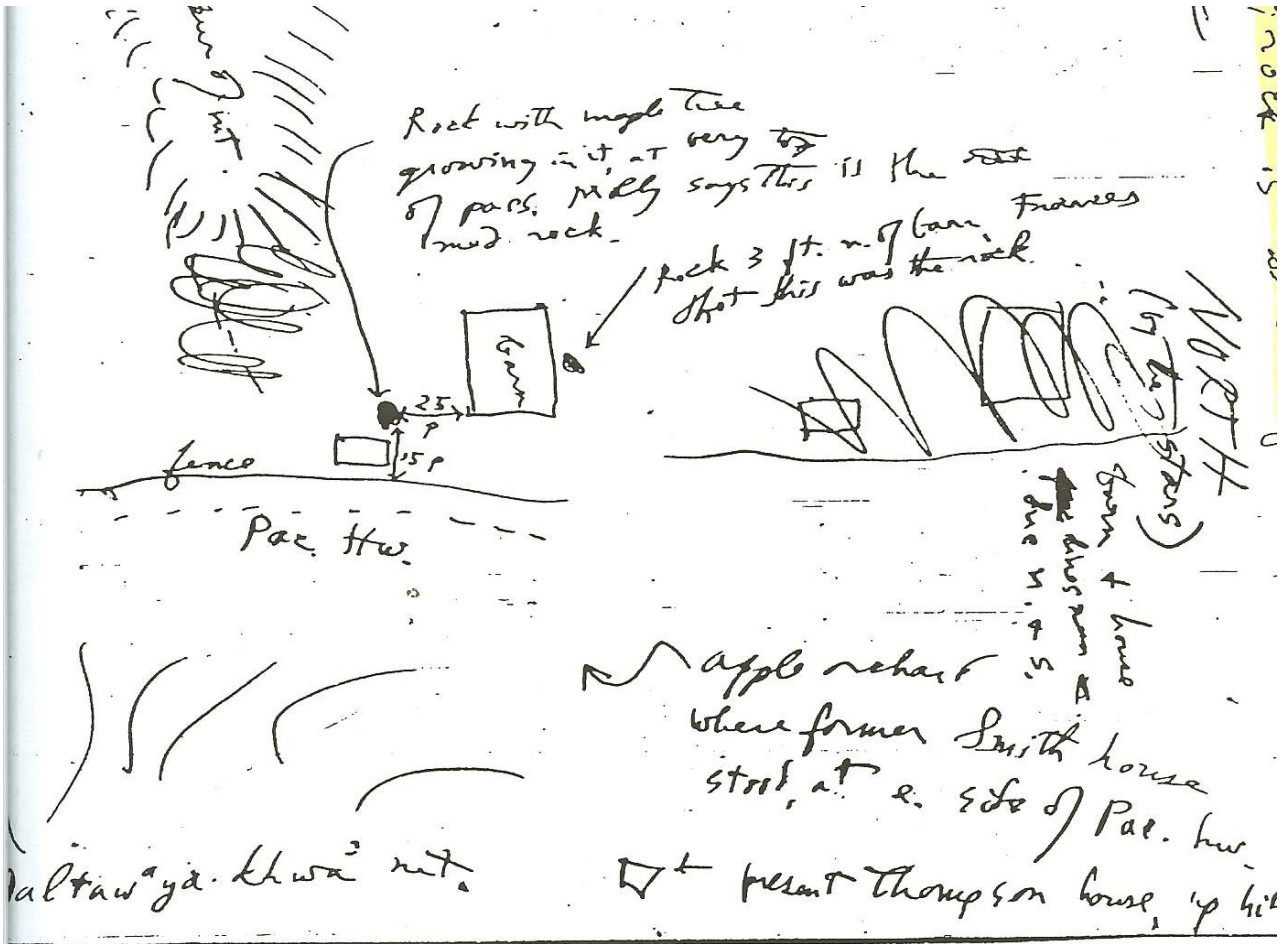 Rock with maple tree
growing in it, at very top
of pass. Molly says this is the
med rock.
Rock 3 ft. n. of barn, Frances
thot this was the rock
barn
25
p
15 p
fence
Pac. Hw.
NORTH
(by the stars)
barn + house
due n. + s.
apple orchard
where former Smith house
stood, at e. side of Pac. hw.
mt.
present Thompson house, up